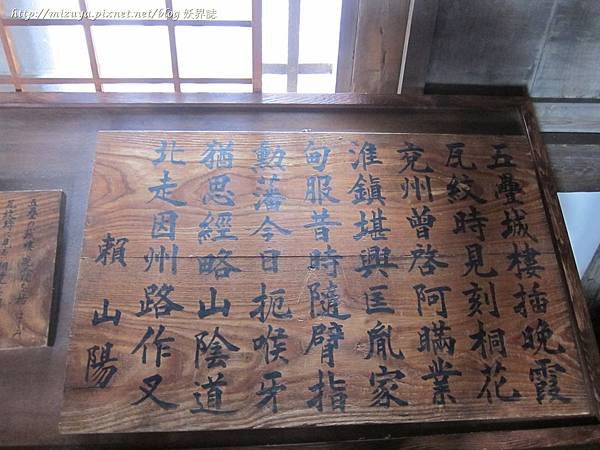 http://mizuya.pixnet.net/blog 妖界誌
五疊城樓插晚霞
瓦紋時見刻桐花
兗州曾啓阿瞞業
淮鎭堪興匡胤家
甸服昔時隨臂指
勲藩今日扼喉牙
猶思經略山陰道
北走因州路作叉
賴山陽